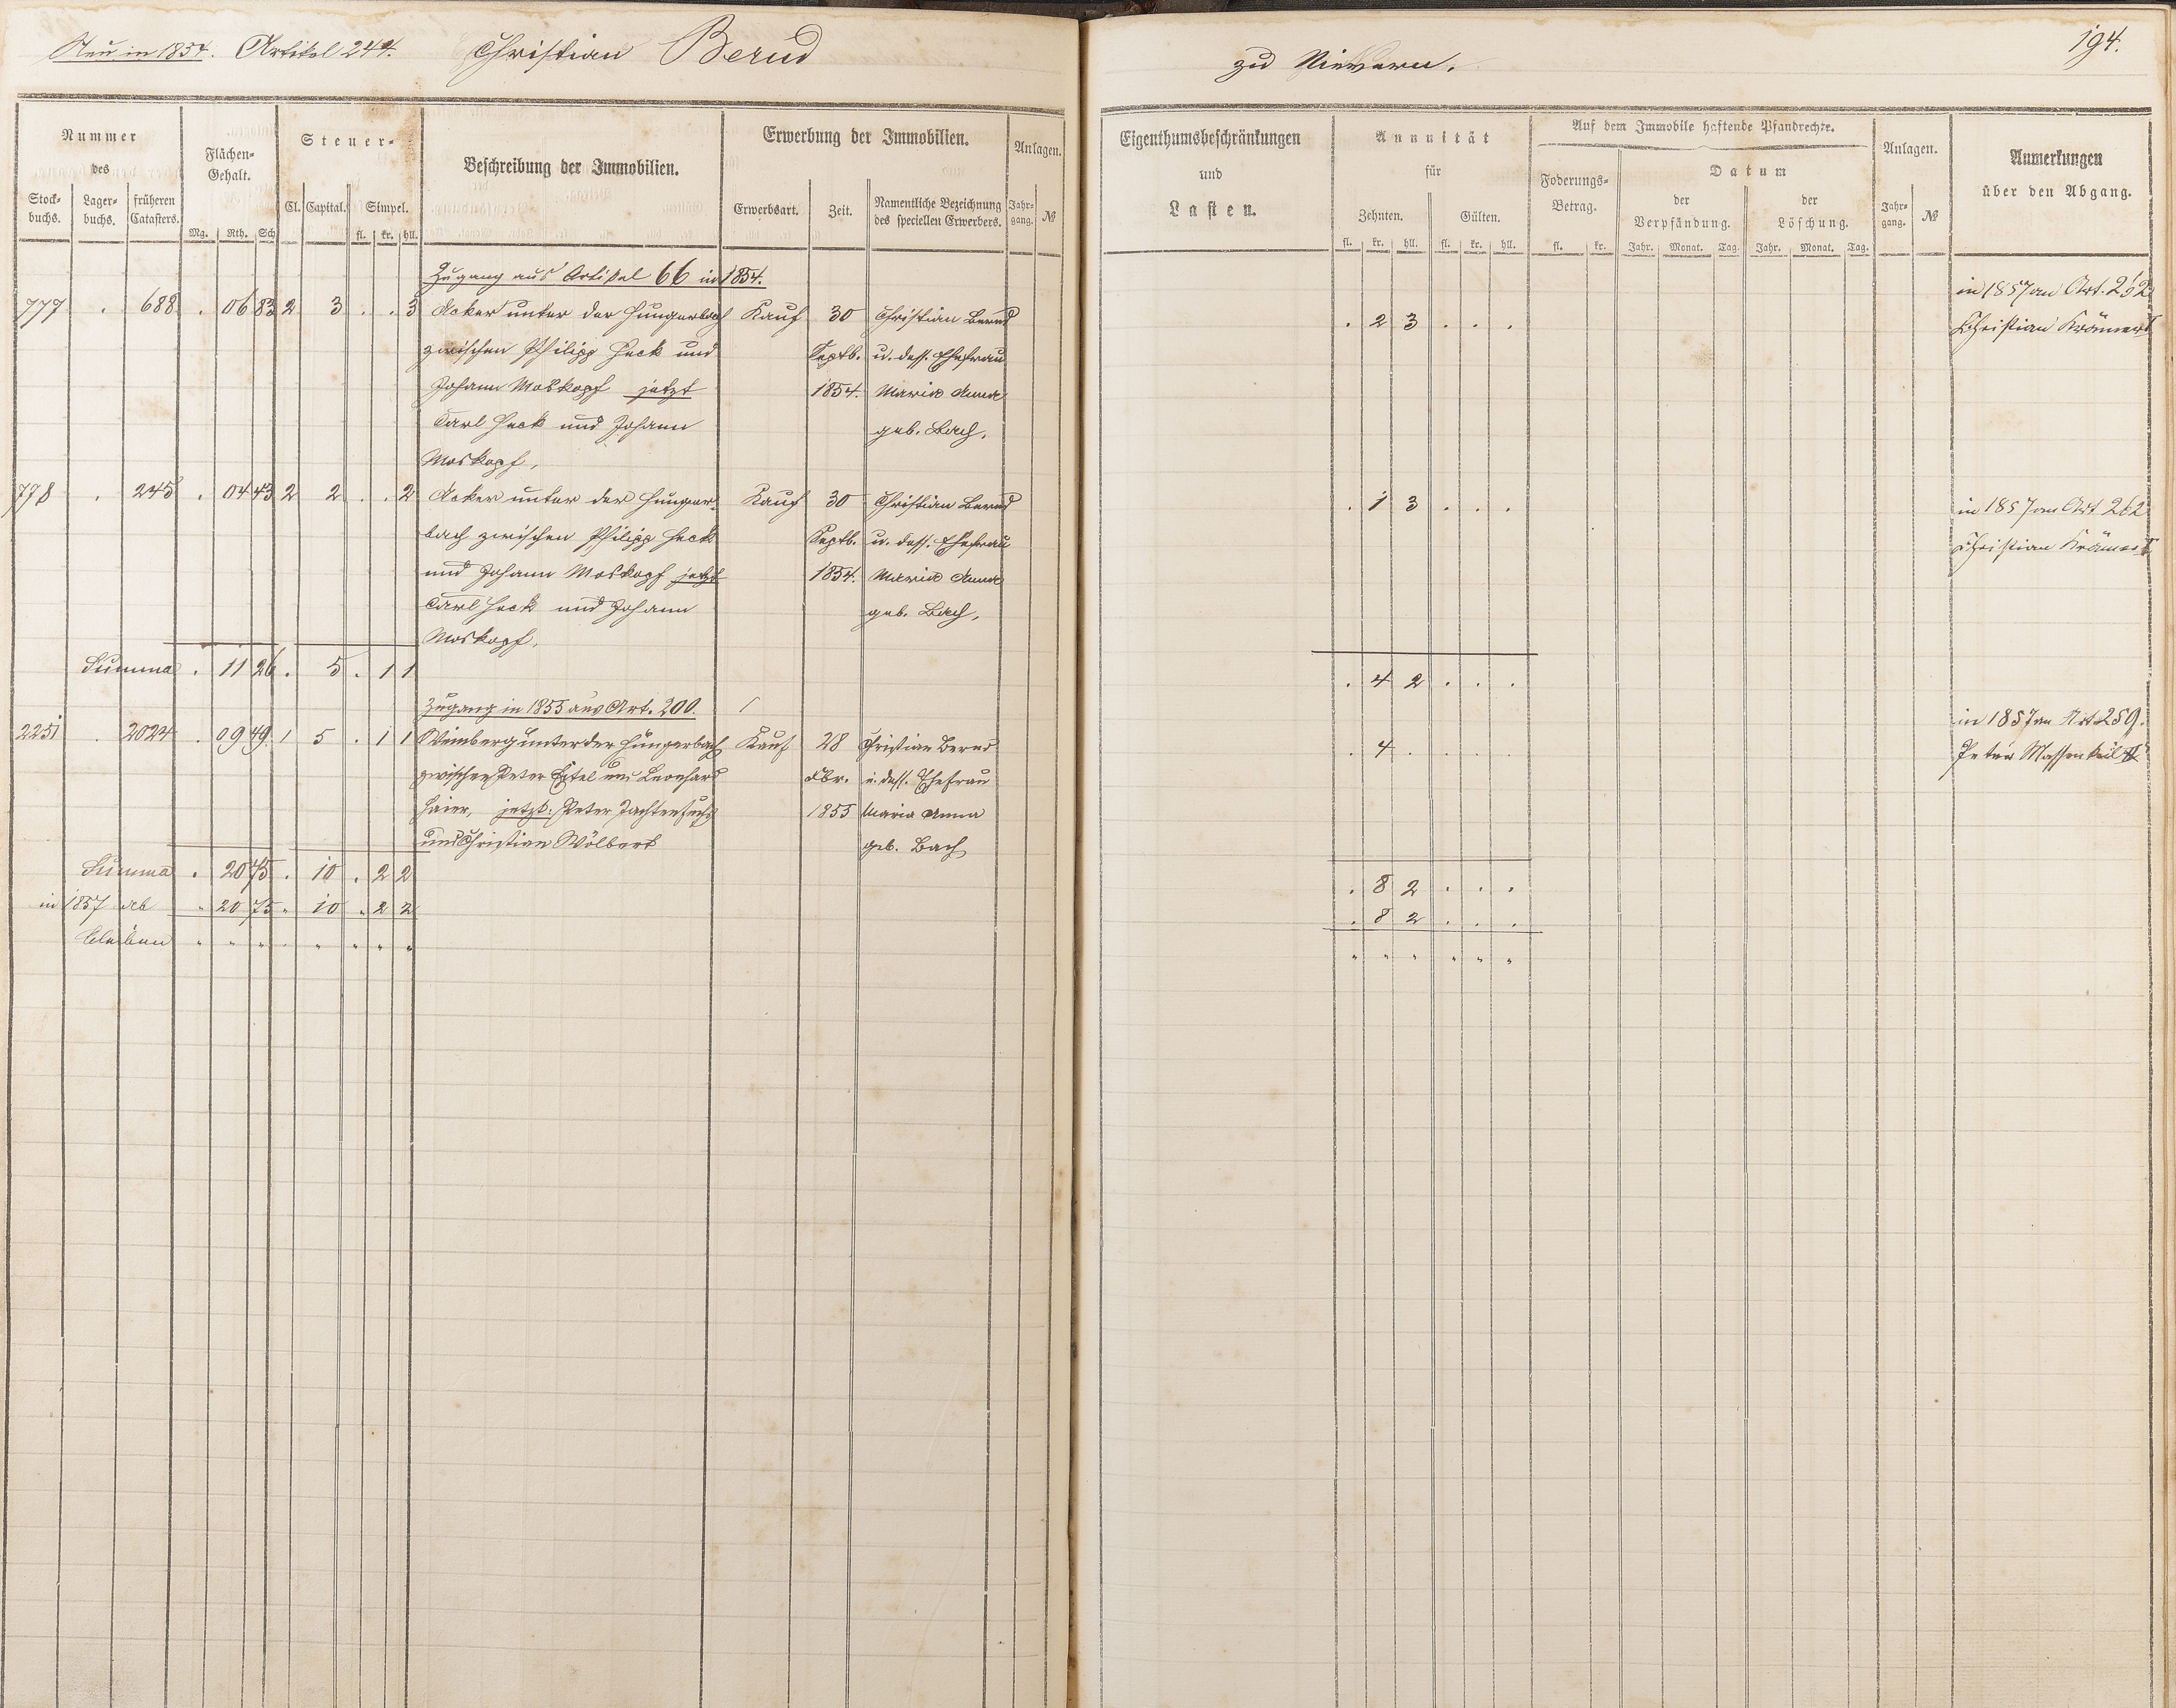 Neu in 1854. Artikel 244. Christian Bernd
zu Nievern. 194.
Nummer des Flächen-Gehalt. Steuer- Beschreibung der Immobilien. Erwerbung der Immobilien. Anlagen.
Stock-buchs. Lager-buchs. früheren Catasters. Mg. Rth. Sch Cl. Capital. Simpel. fl. kr. hll. Erwerbsart. Zeit. Namentliche Bezeichnung des speciellen Erwerbers. Jahr-gang. №
Eigenthumsbeschränkungen und Lasten. Annuität für Auf dem Immobile haftende Pfandrechte. Anlagen. Anmerkungen über den Abgang.
Zehnten. Gülten. Foderungs-Betrag. Datum der Verpfändung. der Löschung. Jahr-gang. №
fl. kr. hll. fl. kr. hll. fl. kr. Jahr. Monat. Tag. Jahr. Monat. Tag.
Zugang aus Artikel 66 in 1854.
777 . 688 . 06 83 2 3 . . 3 Acker unter der Hungerbach Kauf 30 Christian Bernd . 2 3 . . . in 1857 an Art. 262
zwischen Philipp Heck und Septb. u. dess. Ehefrau Christian Krämer
Johann Moskopf jetzt 1854. Maria Anna
Carl Heck und Johann geb. Bach.
Moskopf.
778 . 245 . 04 43 2 2 . . 2 Acker unter der Hunger- Kauf 30 Christian Bernd . 1 3 . . . in 1857 an Art. 262
bach zwischen Philipp Heck Septb. u. dess. Ehefrau Christian Krämer
und Johann Moskopf jetzt 1854. Maria Anna
Carl Heck und Johann geb. Bach.
Moskopf.
Summa . 11 26 . 5 . 1 1 . 4 2 . . .
Zugang in 1855 aus Art. 200.
2251 . 2024 . 09 49 1 5 . 1 1 Weinberg unter der Hungerbach Kauf 28 Christian Bernd . 4 . . . . in 1857 an Art 259.
zwischen Peter und Leonhard Dbr. u. dess. Ehefrau Peter Massenkeil
Haier, jetzt: Peter Dachtenfuchs 1855 Maria Anna
und Christian Wölbert geb. Bach
Summa . 20 75 . 10 . 2 2 . 8 2 . . .
in 1857 ab " 20 75 " 10 " 2 2 . 8 2 . . .
bleiben " " " " " " " " " " " " " "